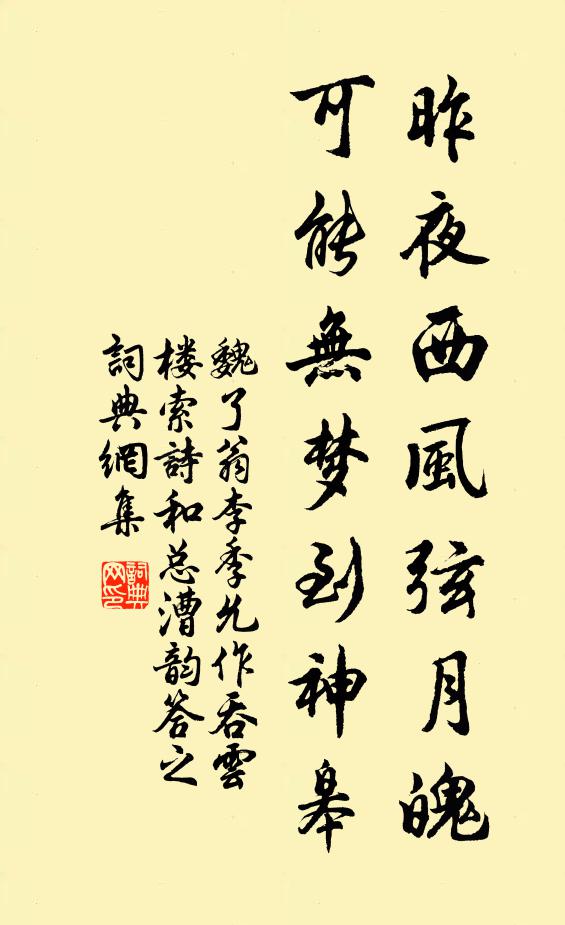 昨夜西風弦月魄
可能無梦到神皋
魏了翁李季允作吞雲
楼索詩和总漕韵答之
詞典網集
詞典
网印